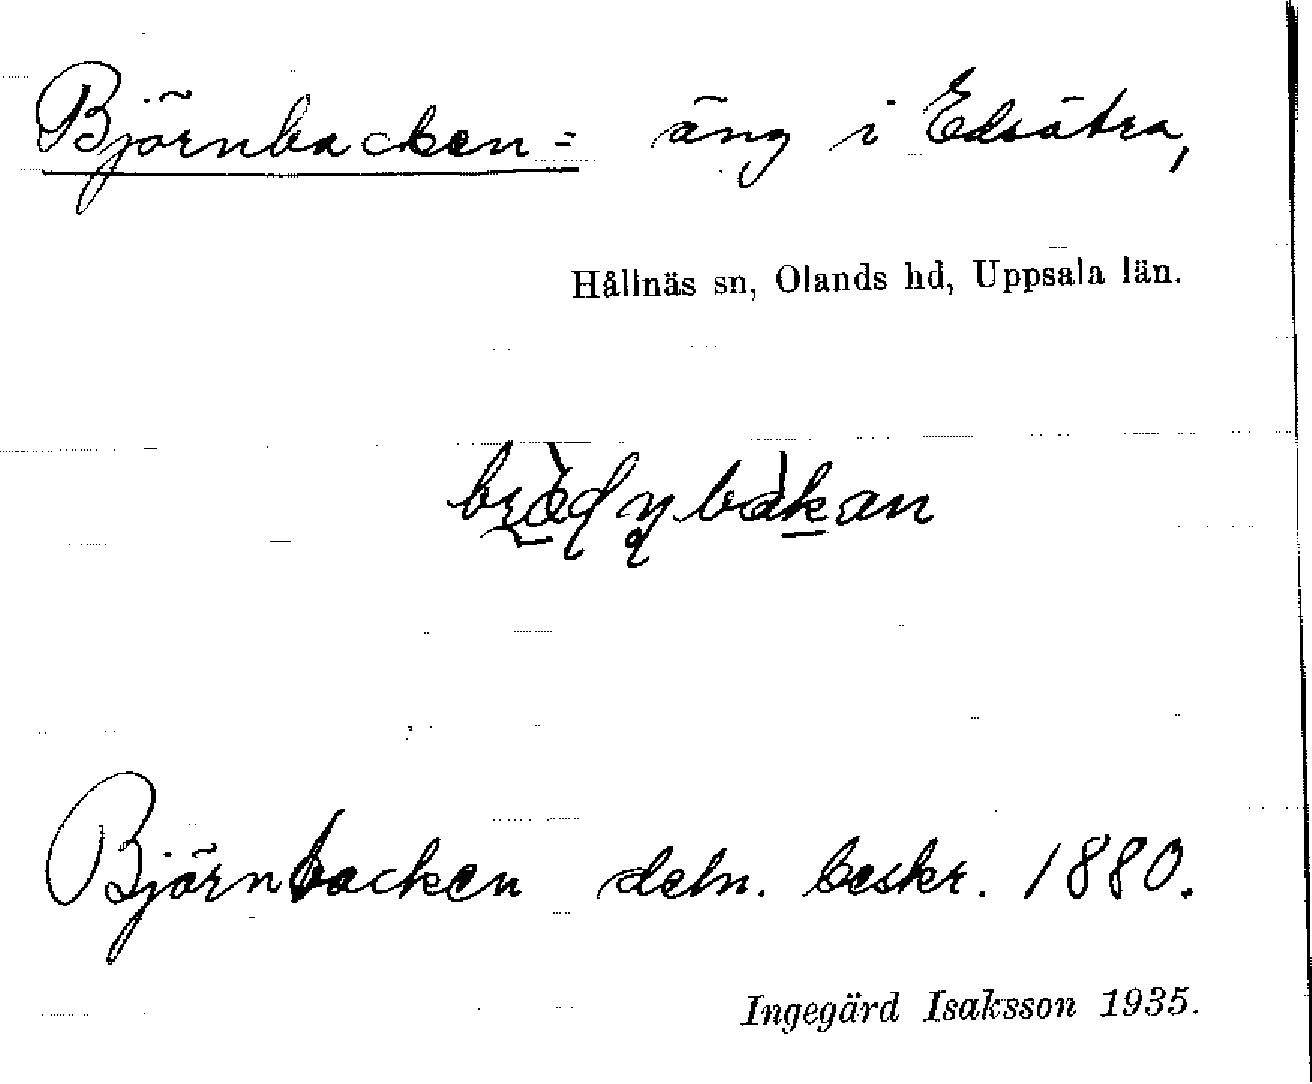 Björnbacken = äng i Edsätra,
Hållnäs sn, Olands hd, Uppsala län.
Björnbacken debn. beskr. 1880.
Ingegärd Isaksson 1935.